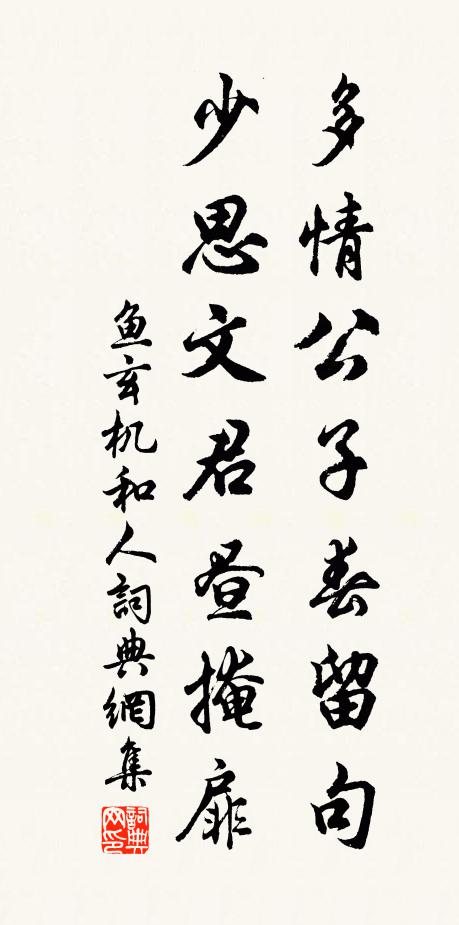 多情公子春留句
少思文君昼掩扉
鱼玄机和人詞典網集
詞典网印